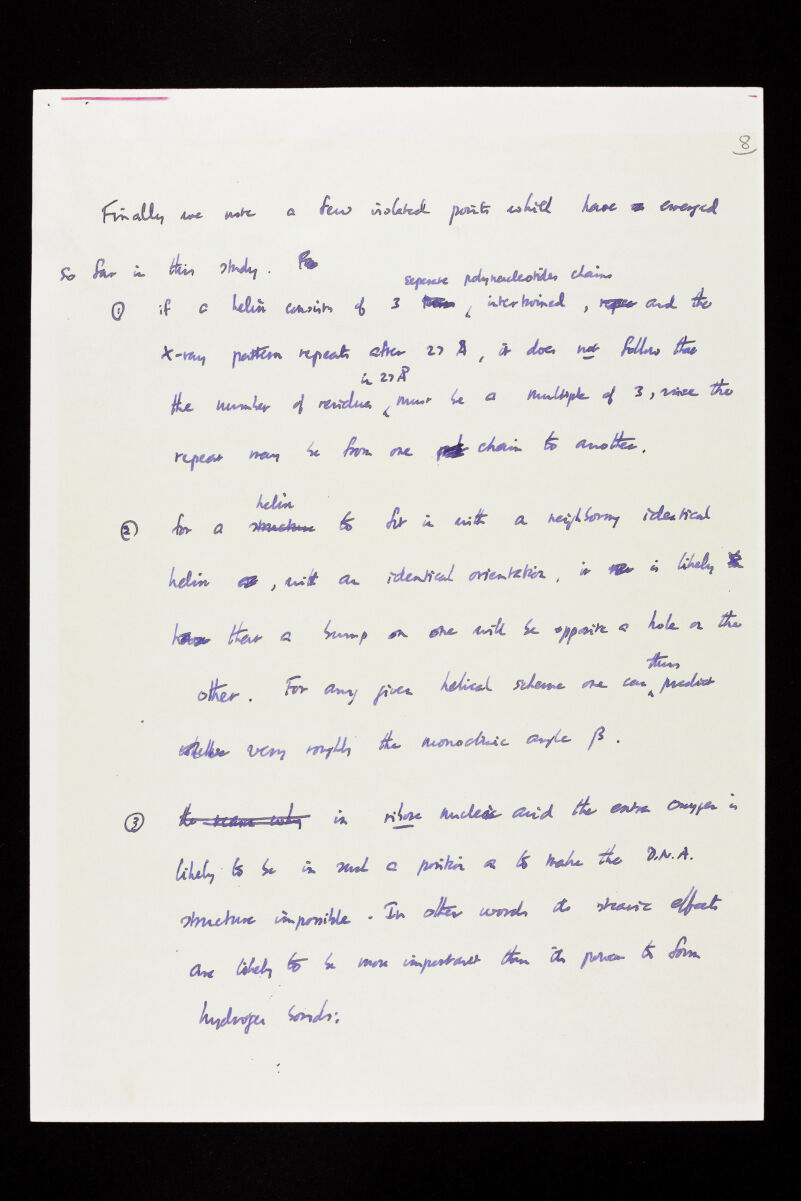 8
Finally we note a few isolated points which have emerged
so far in this study.
seperate polynucleotides chains
① if a helix consists of 3 intertwined, and the
X-ray pattern repeats after 27 Å, it does not follow that
in 27 Å
the number of residues must be a multiple of 3, since the
repeat may be from one chain to another.
helix
② for a structure to fit in with a neighboring identical
helix, with an identical orientation, it is likely
that a bump on one will be opposite a hole on the
thus
other. For any given helical scheme one can predict
whether very roughly the monoclinic angle β.
③ the reason why in ribose nucleic acid the extra oxygen is
likely to be in such a position as to make the D.N.A.
structure impossible. In other words its stearic effects
are likely to be more important than its power to form
hydrogen bonds.